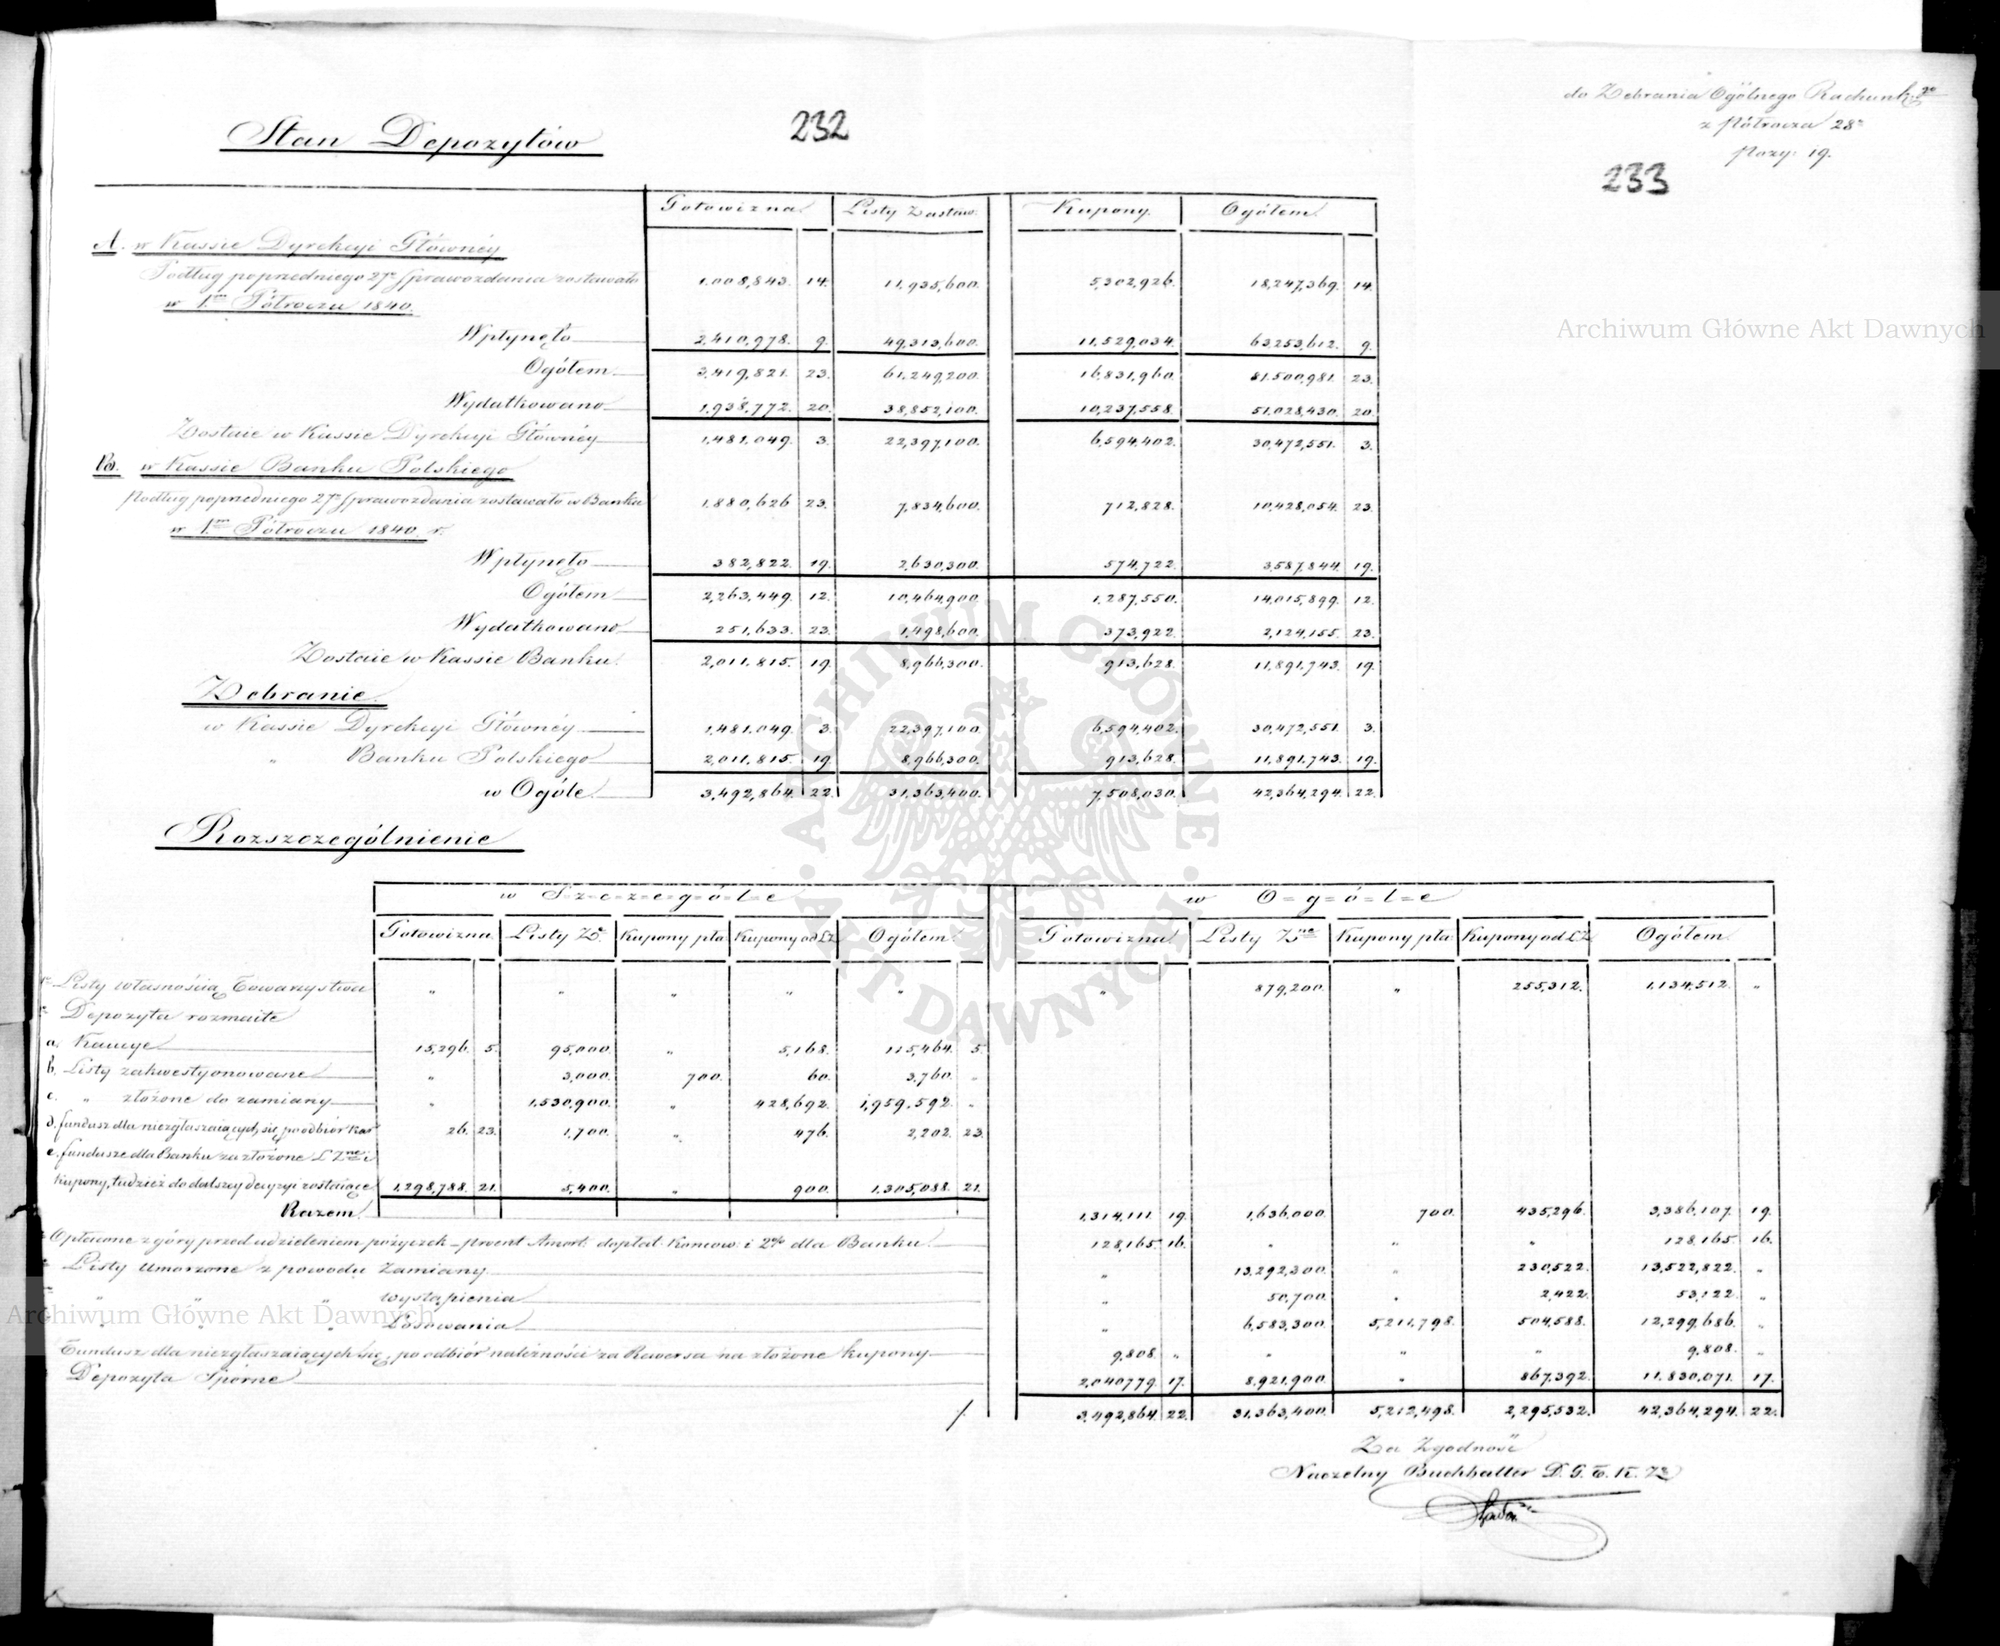 do Zebrania Ogólnego Rachunk:go
z Półrocza 28o
Pozy: 19.
232
233
Stan Depozytów
Gotowizna Listy Zastaw: Kupony. Ogółem.
A. w Kassie Dyrekcyi Głównéy
Podług poprzedniego 27o Sprawozdania zostawało 1,008,843. 14. 11,935,600. 5,302,926. 18,247,369. 14.
w 1m Półroczu 1840.
Wpłynęło 2,410,978. 9. 49,313,600. 11,529,034. 63,253,612. 9.
Ogółem 3,419,821. 23. 61,249,200. 16,831,960. 81,500,981. 23.
Wydatkowano 1,938,772. 20. 38,852,100. 10,237,558. 51,028,430. 20.
Zostaie w Kassie Dyrekcyi Głównéy 1,481,049. 3. 22,397,100. 6,594,402. 30,472,551. 3.
B. w Kassie Banku Polskiego
Podług poprzedniego 27o Sprawozdania zostawało w Banku 1,880,626 23. 7,834,600. 712,828. 10,428,054. 23.
w 1m Półroczu 1840. r.
Wpłynęło 382,822. 19. 2,630,300. 574,722. 3,587,844. 19.
Ogółem 2,263,449. 12. 10,464,900. 1,287,550. 14,015,899. 12.
Wydatkowano 251,633. 23. 1,498,600. 373,922. 2,124,155. 23.
Zostaie w Kassie Banku. 2,011,815. 19. 8,966,300. 913,628. 11,891,743. 19.
Zebranie.
w Kassie Dyrekcyi Głównéy 1,481,049. 3. 22,397,100. 6,594,402. 30,472,551. 3.
„ Banku Polskiego 2,011,815. 19. 8,966,300. 913,628. 11,891,743. 19.
w Ogóle. 3,492,864. 22. 31,363,400. 7,508,030. 42,364,294. 22.
Rozszczególnienie
w S=z=c=z=e=g=ó=l=e w O=g=ó=l=e
Gotowizna Listy Ze. Kupony pła: Kupony od LZ. Ogółem. Gotowizna Listy Zne Kupony pła: Kupony od LZ. Ogółem.
Listy własnością Towarzystwa „ „ „ „ „ „ 879,200. „ 255,312. 1,134,512. „
Depozyta rozmaite
a. Kaucye 15,296. 5. 95,000. „ 5,168. 115,464. 5.
b. Listy zakwestyonowane „ 3,000. 700. 60. 3,760. „
c. „ złożone do zamiany „ 1,530,900. „ 428,692. 1,959,592. „
d. fundusz dla niezgłaszaiących się po odbiór kar 26. 23. 1,700. „ 476. 2,202. 23.
e. fundusze dla Banku za złożone L Zne i
Kupony, tudzież do dalszey decyzyi zostaiące 1,298,788. 21. 5,400. „ 900. 1,305,088. 21.
Razem. 1,314,111. 19. 1,636,000. 700. 435,296. 3,386,107. 19.
Opłacone z góry przed udzieleniem pożyczek procent Amort: dopłat: Konwow: i 2% dla Banku. 128,165. 16. „ „ „ 128,165 16.
Listy Umorzone z powodu Zamiany „ 13,292,300. „ 230,522. 13,522,822. „
„ „ „ wystąpienia „ 50,700. „ 2,422. 53,122. „
„ „ „ Losowania „ 6,583,300. 5,211,798. 504,588. 12,299,686. „
Fundusz dla niezgłaszaiących się, po odbiór należności za Rewersa na złożone kupony 9,808. „ „ „ „ 9,808. „
Depozyta Sporne 2,040,779. 17. 8,921,900. „ 867,392. 11,830,071. 17.
3,492,864. 22. 31,363,400. 5,212,498. 2,295,532. 42,364,294. 22.
Za Zgodność
Naczelny Buchhalter D. G. T. K. Zo
Archiwum Główne Akt Dawnych
Archiwum Główne Akt Dawnych
ARCHIWUM GŁÓWNE AKT DAWNYCH